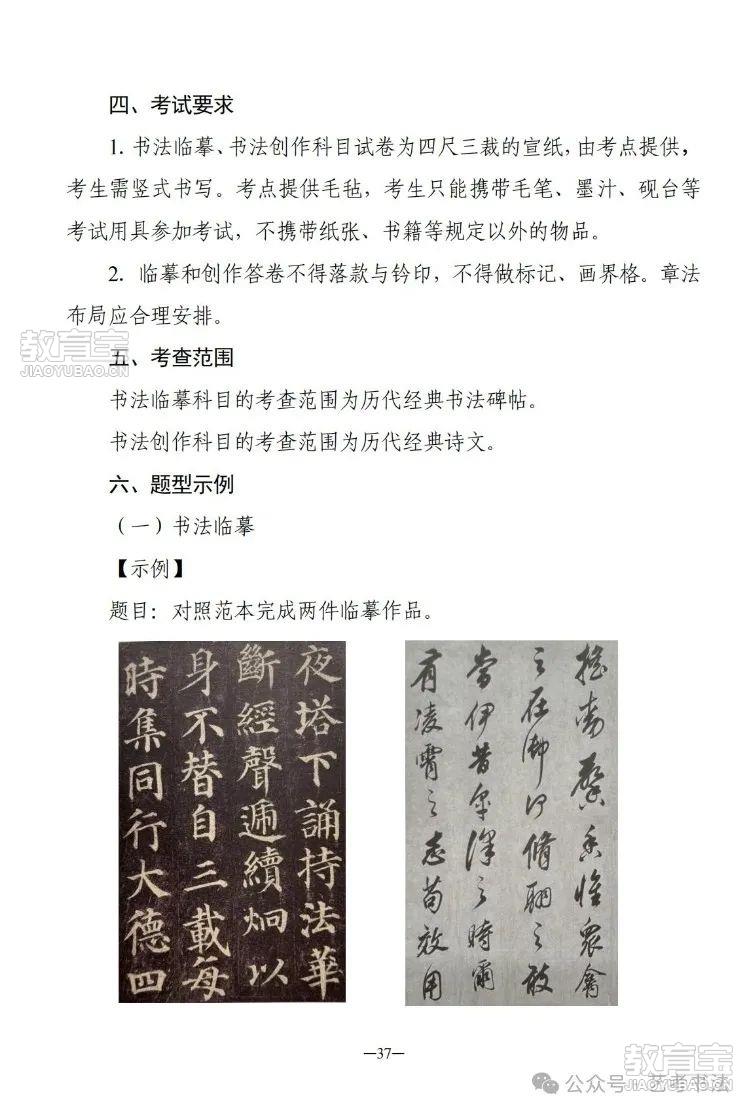 四、考试要求
1. 书法临摹、书法创作科目试卷为四尺三裁的宣纸,由考点提供,
考生需竖式书写。考点提供毛毡,考生只能携带毛笔、墨汁、砚台等
考试用具参加考试,不携带纸张、书籍等规定以外的物品。
2. 临摹和创作答卷不得落款与钤印,不得做标记、画界格。章法
布局应合理安排。
教育宝
JIAOYUBAO.CN
五、考查范围
书法临摹科目的考查范围为历代经典书法碑帖。
书法创作科目的考查范围为历代经典诗文。
六、题型示例
(一)书法临摹
【示例】
题目:对照范本完成两件临摹作品。
夜塔下誦持法華
斷經聲遞續炯以
身不替自三載每
時集同行大德四
搖動馨香惟眾
之在御何脩翮之敢
當伊昔皋澤之時爾
有凌霄之志苟效用
—37—
教育宝
JIAOYUBAO.CN
公众号·艺考书法